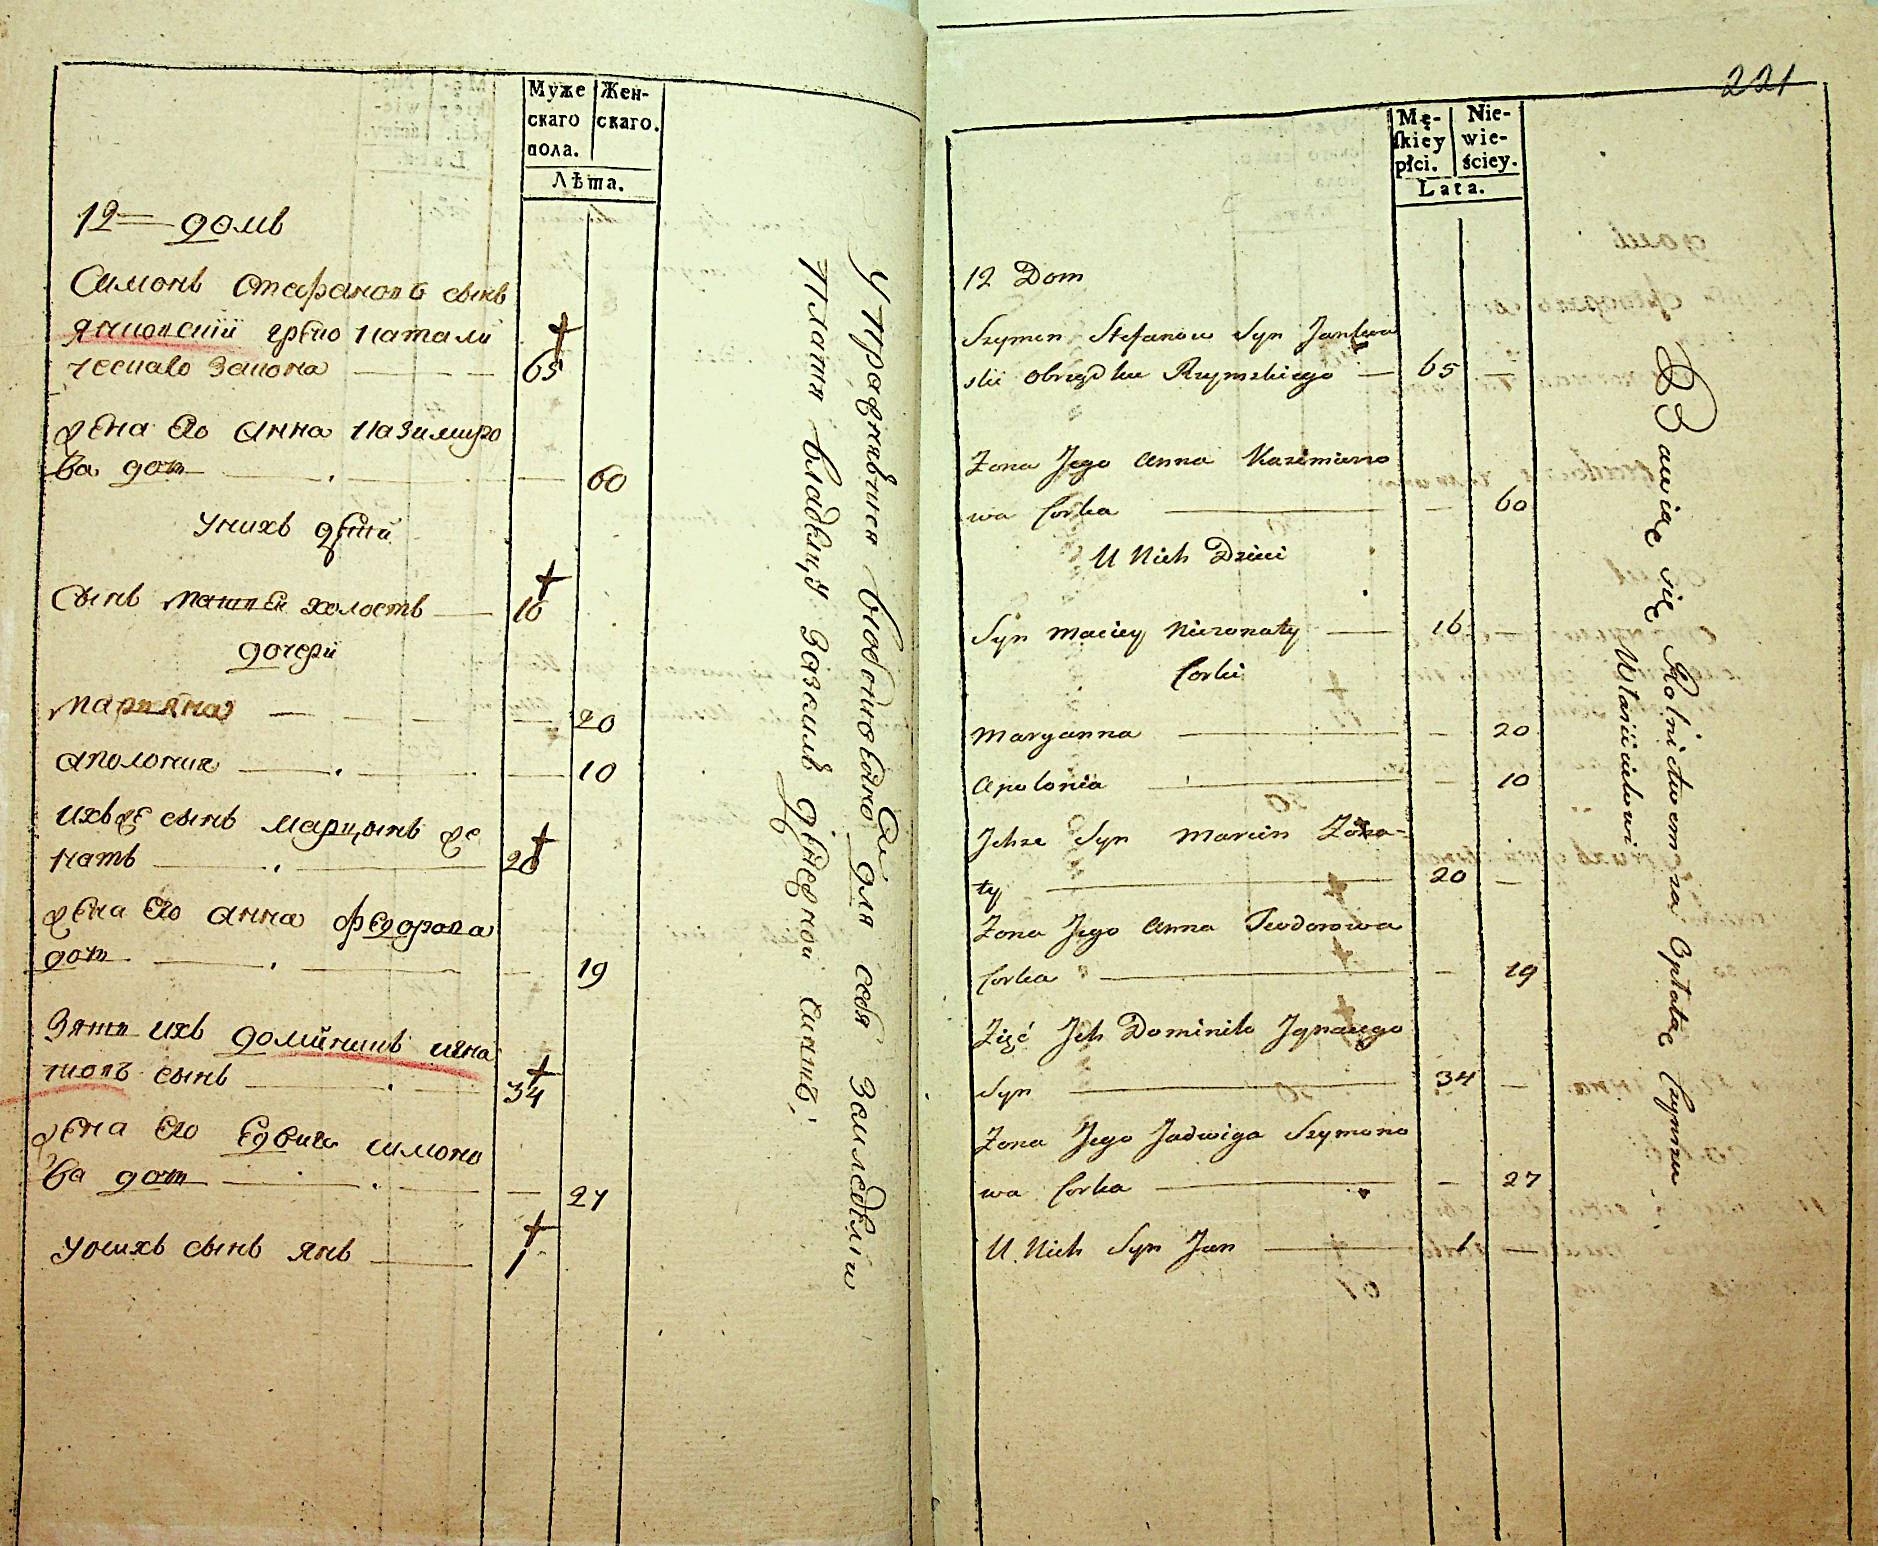 Муже
скаго
пола.
Жен-
скаго.
Лѣта.
12 домъ
Симонъ Стефановъ сынъ
Янковскїй грено катали
ческаго закона 65
жена Его Анна Казимиро
ва доч 60
У нихъ дѣти
Сынъ Матвей холостъ 16
дочери
Марияна 20
Аполония 10
ихъже сынъ Марцынъ же
натъ 20
жена Его Анна Федорова
доч 19
Зять ихъ Доминикъ Игна
товъ сынъ 34
жена Его Едвига Симоно
ва доч 27
У нихъ сынъ Янъ 1
Упражняются для себя Земледѣлїи
Платя владѣлцу
221
Mę-
skiey
płci.
Nie-
wie-
ściey.
Lata.
12 Dom
Szymon Stefanow Syn Jankow
ski Obrządku Rzymskiego 65
Zona Jego Anna Kazimierzo
wa Corka 60
U Nich Dzieci
Syn Maciey Niezonaty 16
Corki
Maryanna 20
Apolonia 10
Ichze Syn Marcin Zona-
ty 20
Zona Jego Anna Teodorowa
Corka 19
Zięć Ich Dominik Ignacego
Syn 34
Zona Jego Jadwiga Szymono
wa Corka 27
U Nich Syn Jan 1
Bawią się Rolnictwem za Opłatę Czynszu
Właścicielowi